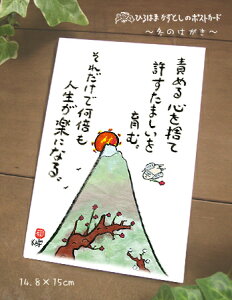 ひろはまかずとしのポストカード
～冬のはがき～
責める心を捨て
許すたましいを
育む。
それだけで何倍も
人生が楽になる。
14.8×15cm